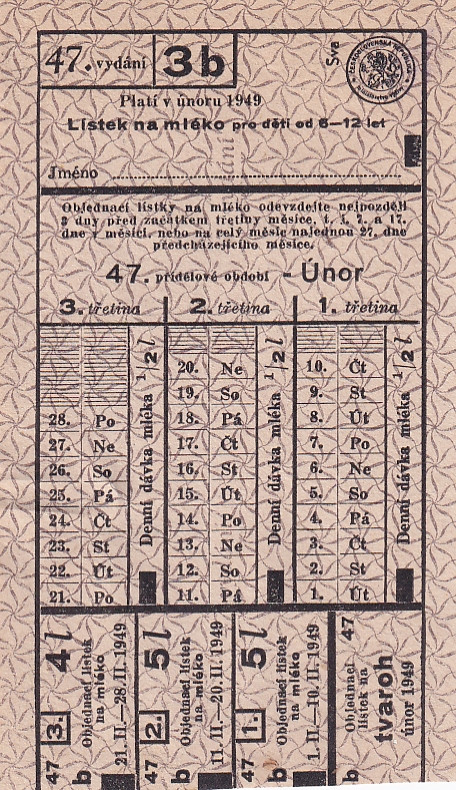 47. vydání 3b
Sva
ČESKOSLOVENSKÁ REPUBLIKA
Platí v únoru 1949
Lístek na mléko pro děti od 6—12 let
Jméno
Objednací lístky na mléko odevzdejte nejpozději
3 dny před začátkem třetiny měsíce, t. j. 7. a 17.
dne v měsíci, nebo na celý měsíc najednou 27. dne
předcházejícího měsíce.
47. přídělové období - Únor
3. třetina 2. třetina 1. třetina
20. Ne 10. Čt
19. So 9. St
28. Po 18. Pá 8. Út
27. Ne 17. Čt 7. Po
26. So 16. St 6. Ne
25. Pá 15. Út 5. So
24. Čt 14. Po 4. Pá
23. St 13. Ne 3. Čt
22. Út 12. So 2. St
21. Po 11. Pá 1. Út
Denní dávka mléka 1/2 l
Denní dávka mléka 1/2 l
Denní dávka mléka 1/2 l
47 3. 4 l
b Objednací lístek
na mléko
21. II.—28. II. 1949
47 2. 5 l
b Objednací lístek
na mléko
11. II.—20. II. 1949
47 1. 5 l
b Objednací lístek
na mléko
1. II.—10. II. 1949
b 47
Objednací
lístek na
tvaroh
únor 1949